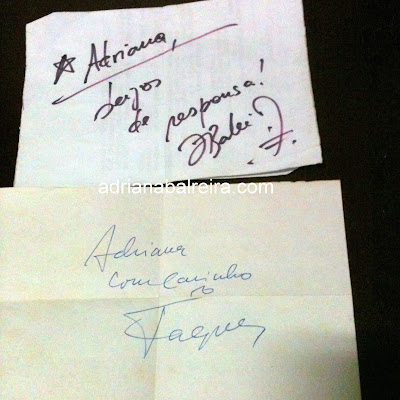 Adriana,
beijos
de responsa!
adrianabalreira.com
Adriana
com carinho